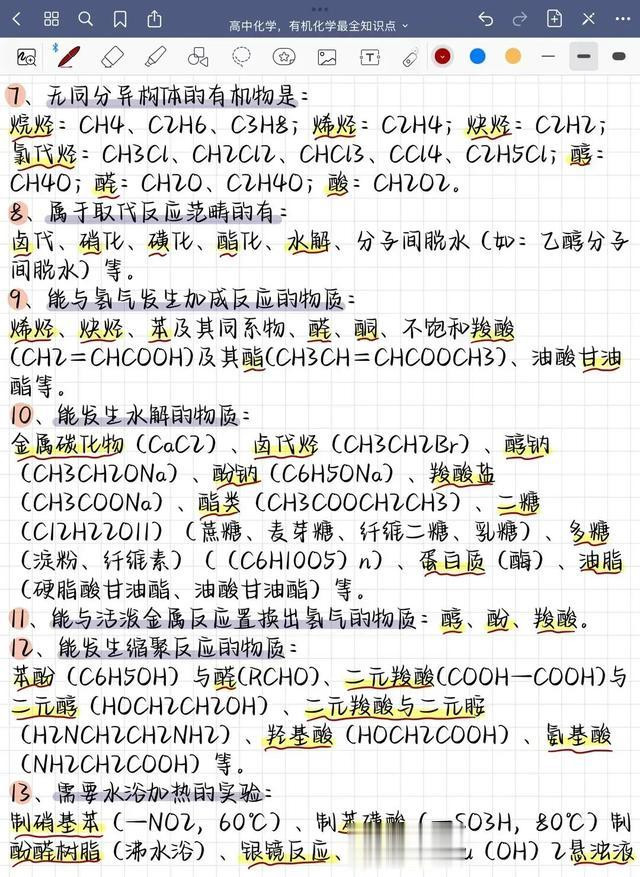 高中化学，有机化学最全知识点
7、无同分异构体的有机物是：
烷烃：CH4、C2H6、C3H8；烯烃：C2H4；炔烃：C2H2；
氯代烃：CH3Cl、CH2Cl2、CHCl3、CCl4、C2H5Cl；醇：
CH4O；醛：CH2O、C2H4O；酸：CH2O2。
8、属于取代反应范畴的有：
卤代、硝化、磺化、酯化、水解、分子间脱水（如：乙醇分子
间脱水）等。
9、能与氢气发生加成反应的物质：
烯烃、炔烃、苯及其同系物、醛、酮、不饱和羧酸
(CH2=CHCOOH)及其酯(CH3CH=CHCOOCH3)、油酸甘油
酯等。
10、能发生水解的物质：
金属碳化物（CaC2）、卤代烃（CH3CH2Br）、醇钠
（CH3CH2ONa）、酚钠（C6H5ONa）、羧酸盐
（CH3COONa）、酯类（CH3COOCH2CH3）、二糖
（C12H22O11）（蔗糖、麦芽糖、纤维二糖、乳糖）、多糖
（淀粉、纤维素）（（C6H10O5）n）、蛋白质（酶）、油脂
（硬脂酸甘油酯、油酸甘油酯）等。
11、能与活泼金属反应置换出氢气的物质：醇、酚、羧酸。
12、能发生缩聚反应的物质：
苯酚（C6H5OH）与醛(RCHO)、二元羧酸(COOH—COOH)与
二元醇（HOCH2CH2OH）、二元羧酸与二元胺
（H2NCH2CH2NH2）、羟基酸（HOCH2COOH）、氨基酸
（NH2CH2COOH）等。
13、需要水浴加热的实验：
制硝基苯（—NO2，60℃）、制苯磺酸（—SO3H，80℃）制
酚醛树脂（沸水浴）、银镜反应、（OH）2悬浊液